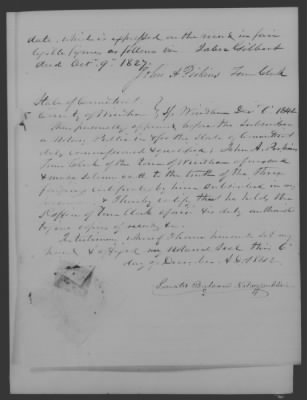 date, which is expressed on the record in fair
legible figures as follows viz Jabez Gilbert
died Oct. 9th 1827.
John A Perkins Town Clerk
State of Connecticut
County of Windham } ss Windham Dec 6th 1842
Then personally appeared before the Subscriber
a Notary Public in & for the State of Connecticut
duly commissioned & qualified, John A. Perkins
Town Clerk of the Town of Windham aforesaid
& made solemn oath to the truth of the three
foregoing certificates by him subscribed in my
& I hereby certify that he holds the
office of Town Clerk aforesaid & is duly authorized
to give copies of records &c.
In testimony whereof I have hereunto set my
hand & affixed my Notarial Seal this 6th
day of December A.D. 1842.
Notary public